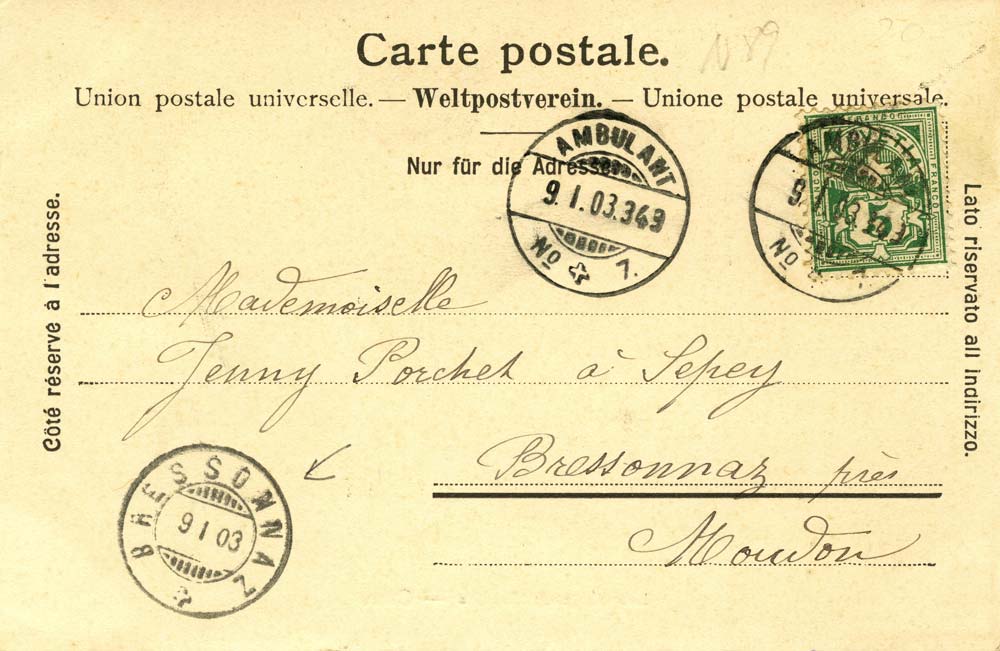 Carte postale.
N 89
Union postale universelle. — Weltpostverein. — Unione postale universale.
Nur für die Adresse.
Côté réservé à l'adresse.
Lato riservato all indirizzo.
AMBULANT
9. I. 03. 349
No 7.
AMBULANT
9. I. 03. 349
No 7.
FRANCO
FRANCO
5
Mademoiselle
Jenny Porchet à Sepey
Bressonnaz près
Moudon
BRESSONNAZ
9 I 03